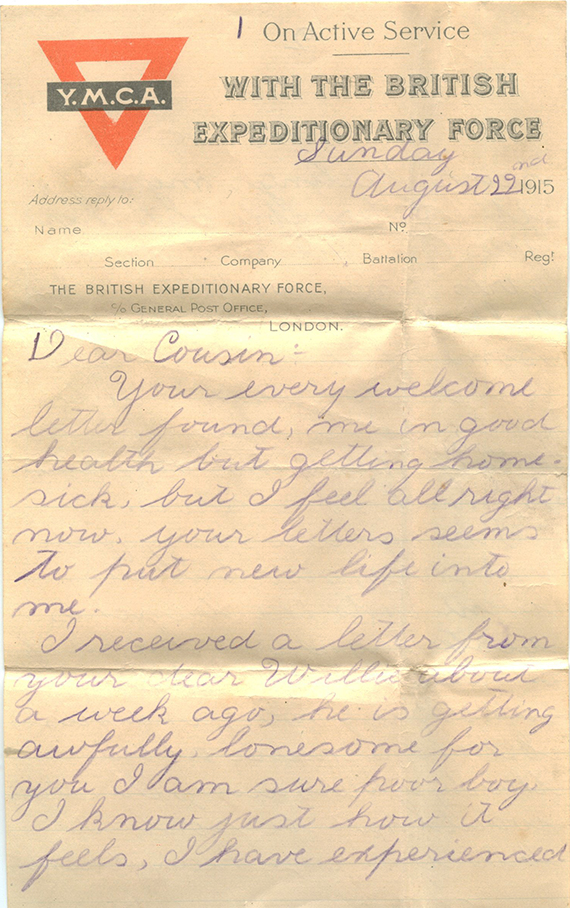 1
On Active Service
Y.M.C.A.
WITH THE BRITISH
EXPEDITIONARY FORCE
Sunday
August 22nd 1915
Address reply to:
Name No
Section Company Battalion Regt
THE BRITISH EXPEDITIONARY FORCE,
c/o GENERAL POST OFFICE,
LONDON.
Dear Cousin:-
Your every welcome
letter found, me in good
health but getting home-
sick, but I feel all right
now. your letters seems
to put new life into
me.
I received a letter from
your dear Willie about
a week ago, he is getting
awfully. lonesome for
you I am sure poor boy.
I know just how it
feels, I have experienced